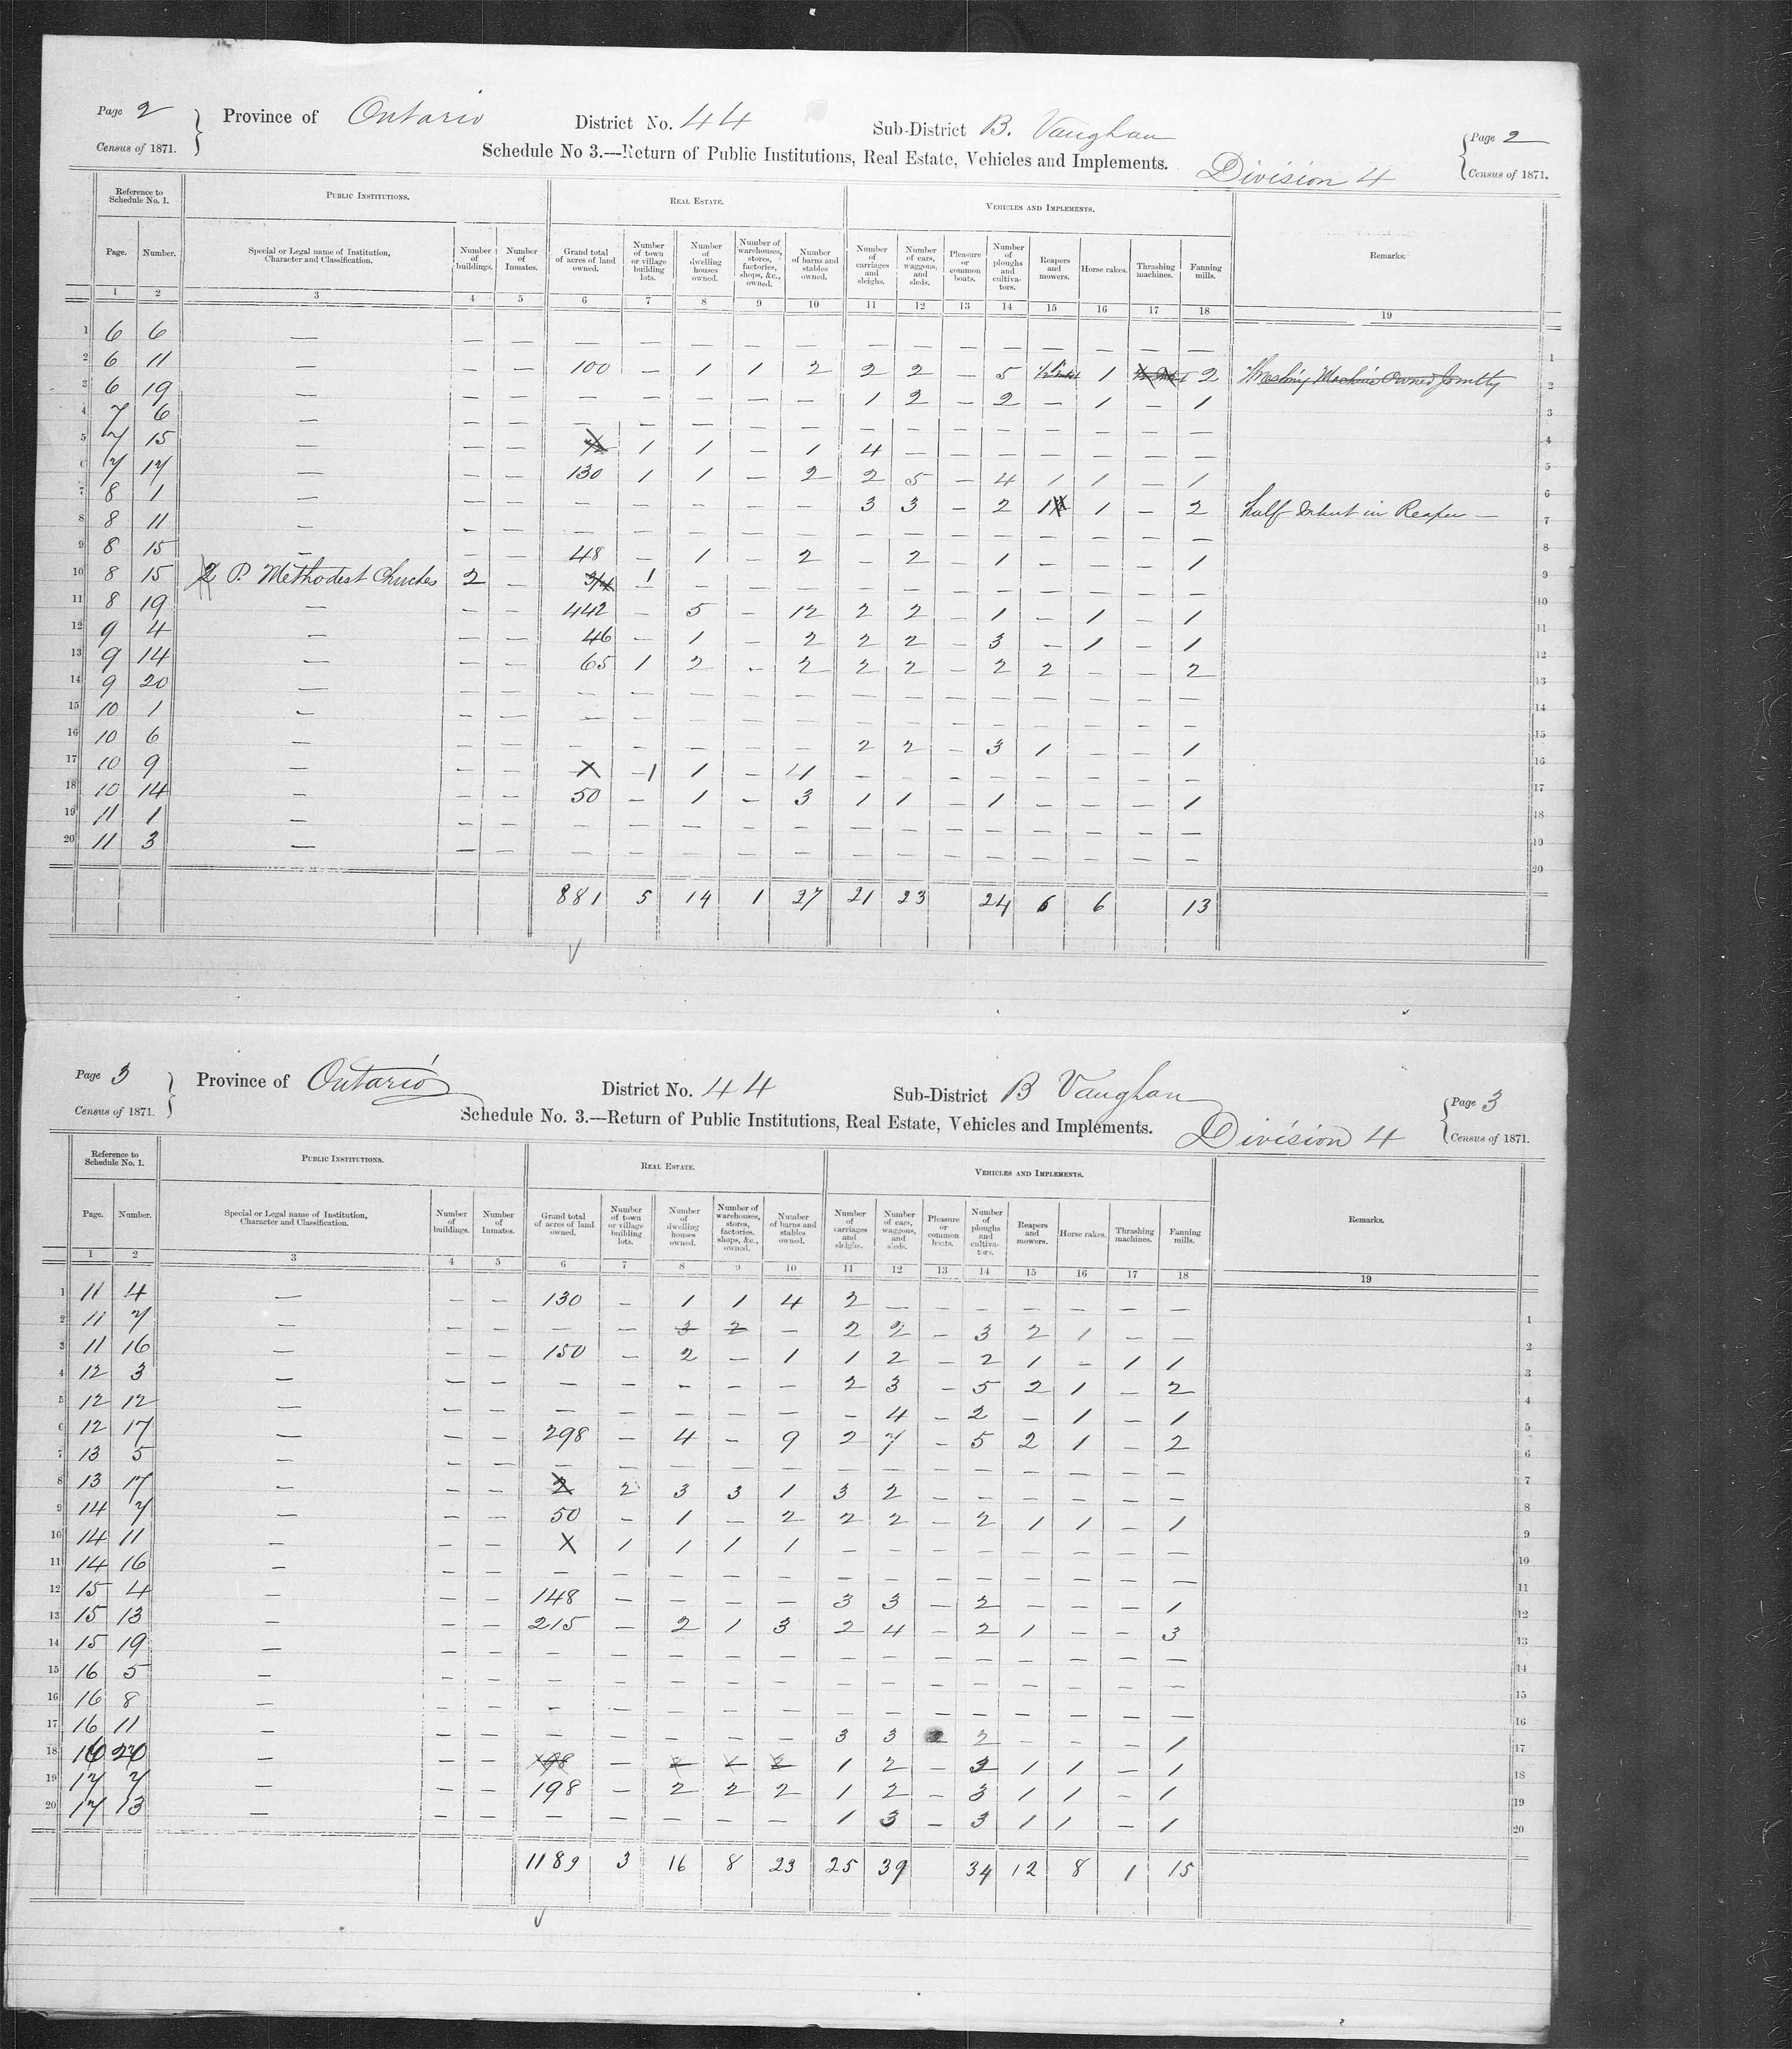 Page 2 Province of Ontario District No. 44 Sub-District B. Vaughan Page 2
Census of 1871. Schedule No 3.---Return of Public Institutions, Real Estate, Vehicles and Implements. Division 4 Census of 1871.
Reference to Schedule No. 1. PUBLIC INSTITUTIONS. REAL ESTATE. VEHICLES AND IMPLEMENTS. Remarks.
Page. Number. Special or Legal name of Institution, Character and Classification. Number of buildings. Number of Inmates. Grand total of acres of land owned. Number of town or village building lots. Number of dwelling houses owned. Number of warehouses, stores, factories, shops, &c., owned. Number of barns and stables owned. Number of carriages and sleighs. Number of cars, waggons, and sleds. Pleasure or common boats. Number of ploughs and cultivators. Reapers and mowers. Horse rakes. Thrashing machines. Fanning mills.
1 2 3 4 5 6 7 8 9 10 11 12 13 14 15 16 17 18 19
1 6 6 — — — — — — — — — — — — — — — — 1
2 6 11 — — — 100 — 1 1 2 2 2 — 5 1 2 Thrashing Machine Owned Jointly 2
3 6 19 — — — — — — — — 1 2 — 2 — 1 — 1 3
4 7 6 — — — — — — — — — — — — — — — — 4
5 7 15 — — — 1 1 — 1 4 — — — — — — — 5
6 7 17 — — — 130 1 1 — 2 2 5 — 4 1 1 — 1 6
7 8 1 — — — — — — — — 3 3 — 2 1 1 — 2 half in Reaper — 7
8 8 11 — — — — — — — — — — — — — — — — 8
9 8 15 — — — 48 — 1 — 2 — 2 — 1 — — — 1 9
10 8 15 2 P. Methodest Churches 2 — 3/4 1 — — — — — — — — — — — 10
11 8 19 — — — 442 — 5 — 12 2 2 — 1 — 1 — 1 11
12 9 4 — — — 46 — 1 — 2 2 2 — 3 — 1 — 1 12
13 9 14 — — — 65 1 2 — 2 2 2 — 2 2 — — 2 13
14 9 20 — — — — — — — — — — — — — — — — 14
15 10 1 — — — — — — — — — — — — — — — — 15
16 10 6 — — — — — — — — 2 2 — 3 1 — — 1 16
17 10 9 — — — 1 1 — 4 — — — — — — — — 17
18 10 14 — — — 50 — 1 — 3 1 1 — 1 — — — 1 18
19 11 1 — — — — — — — — — — — — — — — — 19
20 11 3 — — — — — — — — — — — — — — — — 20
881 5 14 1 37 21 23 24 6 6 13
Page 3 Province of Ontario District No. 44 Sub-District B Vaughan Page 3
Census of 1871. Schedule No. 3.---Return of Public Institutions, Real Estate, Vehicles and Implements. Division 4 Census of 1871.
Reference to Schedule No. 1. PUBLIC INSTITUTIONS. REAL ESTATE. VEHICLES AND IMPLEMENTS. Remarks.
Page. Number. Special or Legal name of Institution, Character and Classification. Number of buildings. Number of Inmates. Grand total of acres of land owned. Number of town or village building lots. Number of dwelling houses owned. Number of warehouses, stores, factories, shops, &c., owned. Number of barns and stables owned. Number of carriages and sleighs. Number of cars, waggons, and sleds. Pleasure or common boats. Number of ploughs and cultivators. Reapers and mowers. Horse rakes. Thrashing machines. Fanning mills.
1 2 3 4 5 6 7 8 9 10 11 12 13 14 15 16 17 18 19
1 11 4 — — — 130 — 1 1 4 2 — — — — — — — 1
2 11 7 — — — — — 3 2 — 2 2 — 3 2 1 — — 2
3 11 16 — — — 150 — 2 — 1 1 2 — 2 1 — 1 1 3
4 12 3 — — — — — — — — 2 3 — 5 2 1 — 2 4
5 12 12 — — — — — — — — — 4 — 2 — 1 — 1 5
6 12 17 — — — 298 — 4 — 9 2 7 — 5 2 1 — 2 6
7 13 5 — — — — — — — — — — — — — — — — 7
8 13 17 — — — 2 2 3 3 1 3 2 — — — — — — 8
9 14 7 — — — 50 — 1 — 2 2 2 — 2 1 1 — 1 9
10 14 11 — — — X 1 1 1 1 — — — — — — — — 10
11 14 16 — — — — — — — — — — — — — — — — 11
12 15 4 — — — 148 — — — — 3 3 — 2 — — — 1 12
13 15 13 — — — 215 — 2 1 3 2 4 — 2 1 — — 3 13
14 15 19 — — — — — — — — — — — — — — — — 14
15 16 5 — — — — — — — — — — — — — — — — 15
16 16 8 — — — — — — — — — — — — — — — — 16
17 16 11 — — — — — — — — 3 3 2 — — — 1 17
18 16 20 — — — 198 — 2 2 2 1 2 — 3 1 1 — 1 18
19 17 7 — — — 198 — 2 2 2 1 2 — 3 1 1 — 1 19
20 17 13 — — — — — — — — 1 3 — 3 1 1 — 1 20
1189 3 16 8 23 25 39 34 12 8 1 15